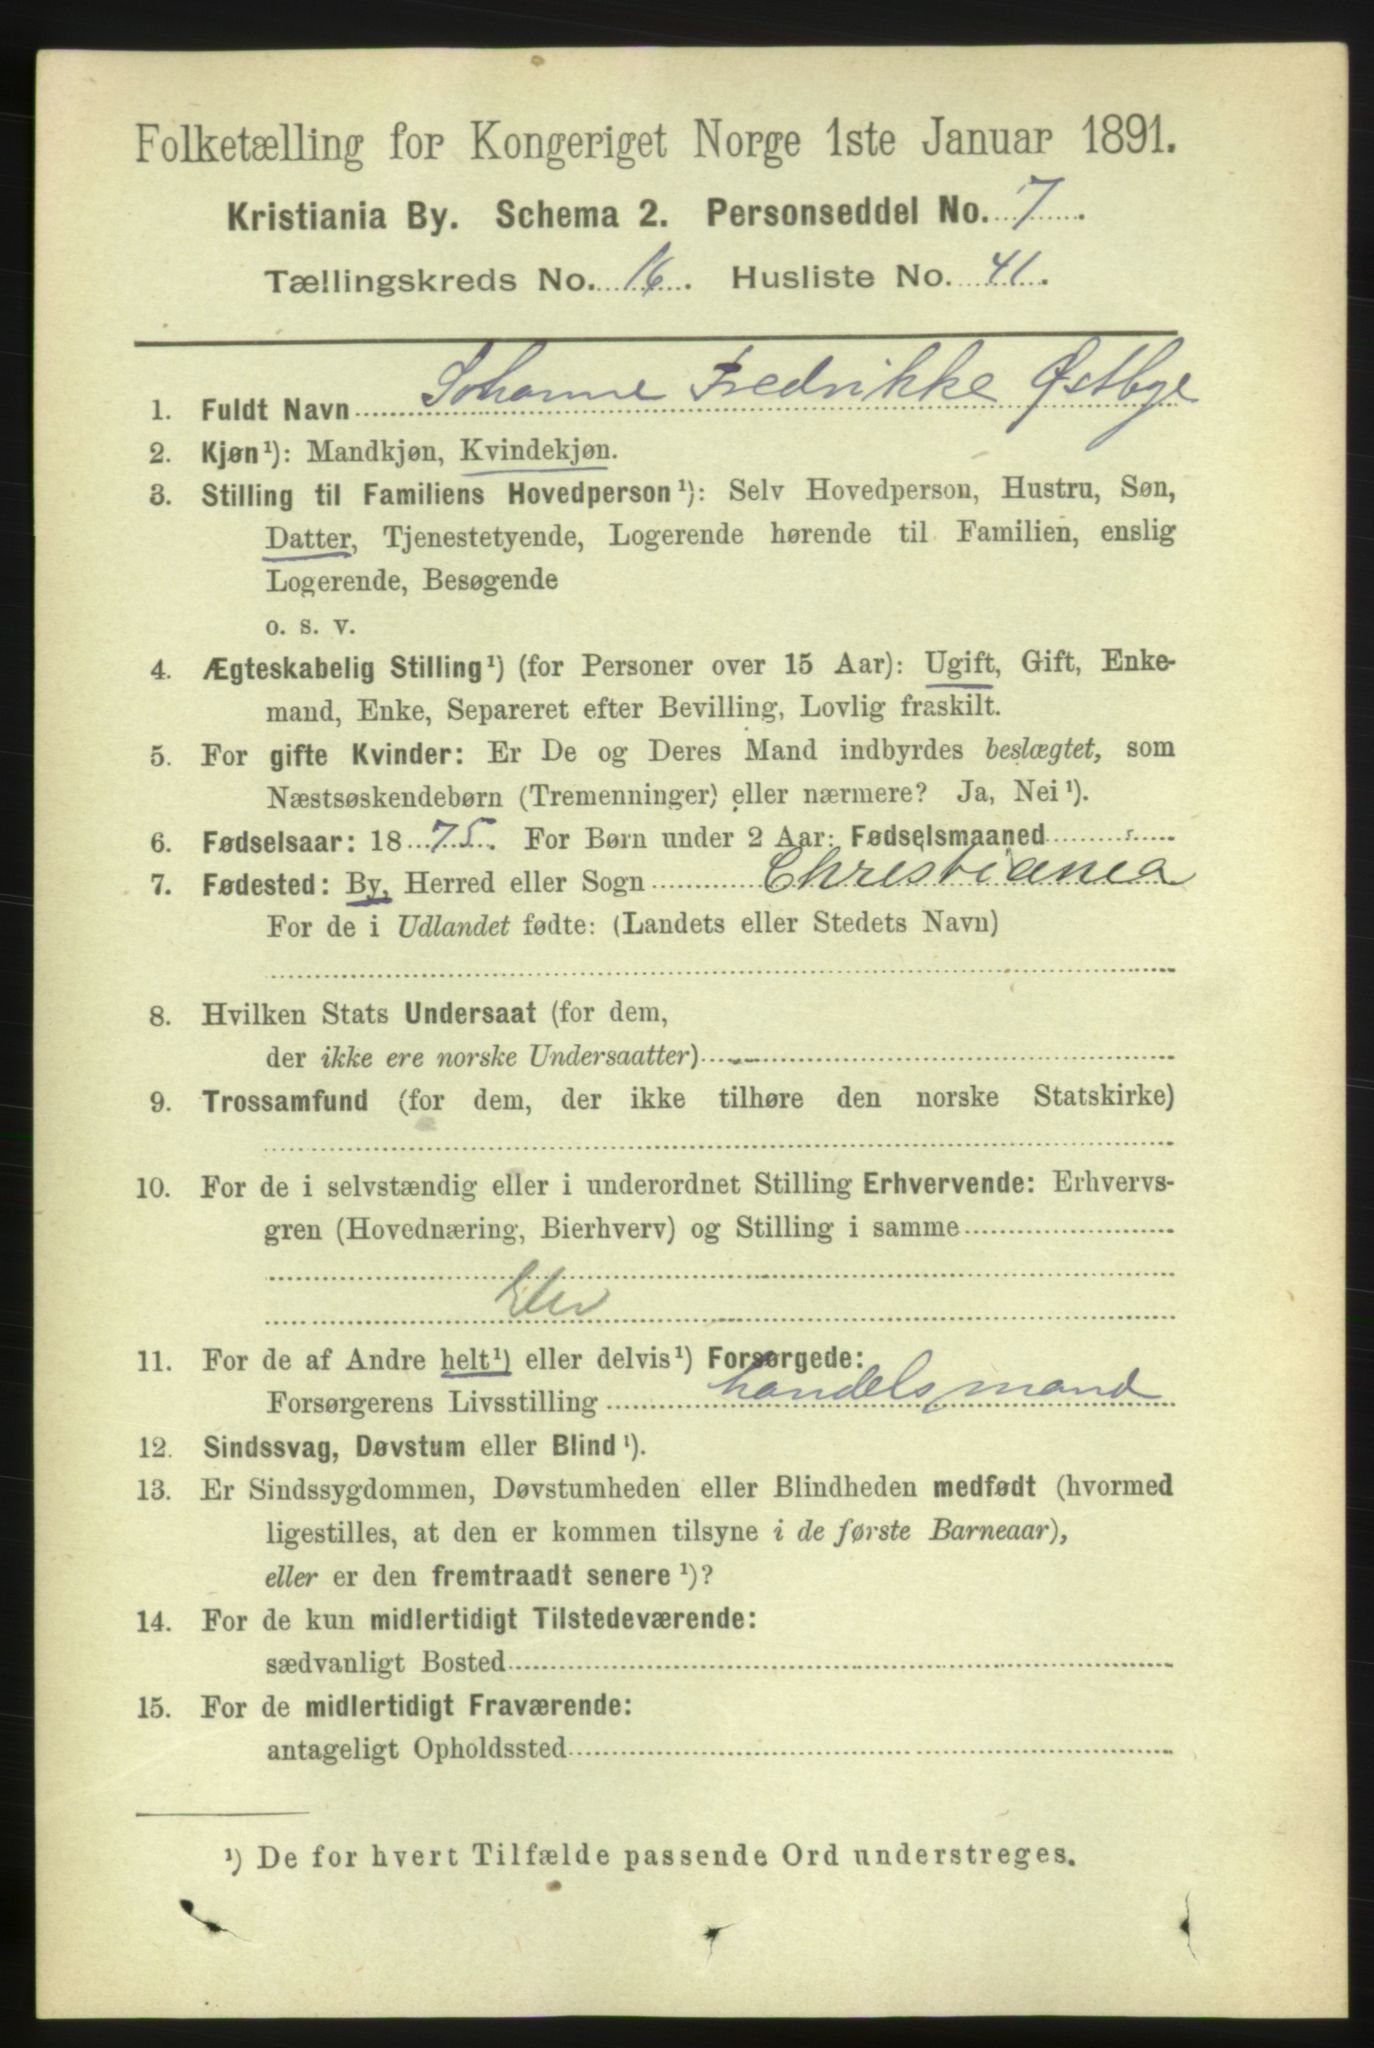 Folketælling for Kongeriget Norge 1ste Januar 1891.
Kristiania By. Schema 2. Personseddel No. 7.
Tællingskreds No. 16. Husliste No. 41.
1. Fuldt Navn Johanne Fredrikke Østbye
2. Kjøn¹): Mandkjøn, Kvindekjøn.
3. Stilling til Familiens Hovedperson¹): Selv Hovedperson, Hustru, Søn,
Datter, Tjenestetyende, Logerende hørende til Familien, enslig
Logerende, Besøgende
o. s. v.
4. Ægteskabelig Stilling¹) (for Personer over 15 Aar): Ugift, Gift, Enke-
mand, Enke, Separeret efter Bevilling, Lovlig fraskilt.
5. For gifte Kvinder: Er De og Deres Mand indbyrdes beslægtet, som
Næstsøskendebørn (Tremenninger) eller nærmere? Ja, Nei¹).
6. Fødselsaar: 1875. For Børn under 2 Aar: Fødselsmaaned
7. Fødested: By, Herred eller Sogn Christiania
For de i Udlandet fødte: (Landets eller Stedets Navn)
8. Hvilken Stats Undersaat (for dem,
der ikke ere norske Undersaatter)
9. Trossamfund (for dem, der ikke tilhøre den norske Statskirke)
10. For de i selvstændig eller i underordnet Stilling Erhvervende: Erhvervs-
gren (Hovednæring, Bierhverv) og Stilling i samme
Elev
11. For de af Andre helt¹) eller delvis¹) Forsørgede:
Forsørgerens Livsstilling handelsmand
12. Sindssvag, Døvstum eller Blind¹).
13. Er Sindssygdommen, Døvstumheden eller Blindheden medfødt (hvormed
ligestilles, at den er kommen tilsyne i de første Barneaar),
eller er den fremtraadt senere¹)?
14. For de kun midlertidigt Tilstedeværende:
sædvanligt Bosted
15. For de midlertidigt Fraværende:
antageligt Opholdssted
¹) De for hvert Tilfælde passende Ord understreges.